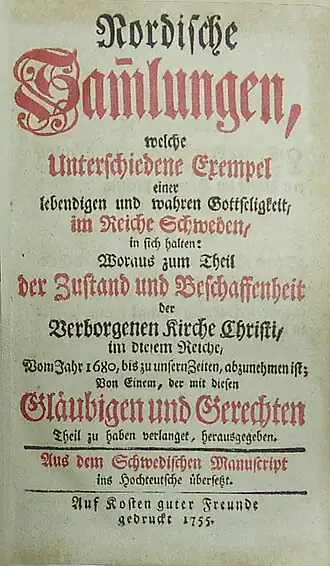 Nordische
Sam̃lungen,
welche
Unterschiedene Exempel
einer
lebendigen und wahren Gottseligkeit,
im Reiche Schweden,
in sich halten:
Woraus zum Theil
der Zustand und Beschaffenheit
der
Verborgenen Kirche Christi,
im diesem Reiche,
Vom Jahr 1680, bis zu unsern Zeiten, abzunehmen ist;
Von Einem, der mit diesen
Gläubigen und Gerechten
Theil zu haben verlanget, herausgegeben.
Aus dem Schwedischen Manuscript
ins Hochteutsche übersetzt.
Auf Kosten guter Freunde
gedruckt 1755.